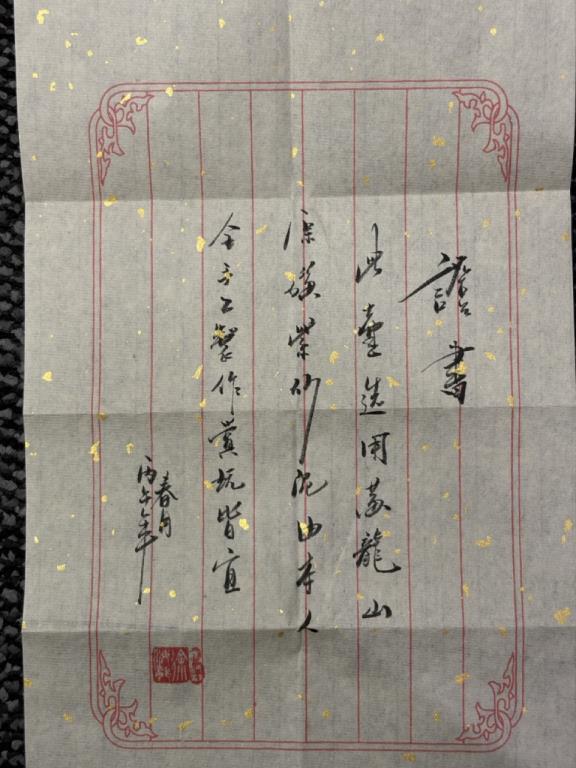 證書
此壺選用黃龍山
原礦紫砂泥由本人
全手工製作賞玩皆宜
丙午年
春月